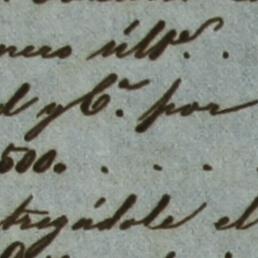 nero últº.
d y Cª. por
500. . . . .
tregádole el